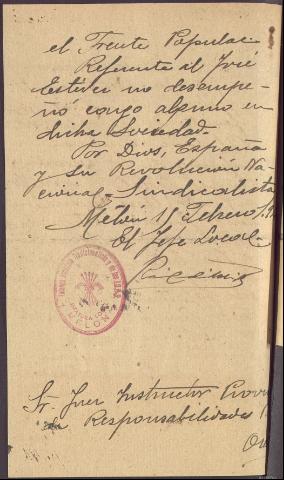 el Frente Popular.
Referente al José
Esteve no desempe-
ñó cargo alguno en
dicha Sociedad.
Por Dios, España
y su Revolución Na-
cional-Sindicalista
15 Febrero
El Jefe Local
JEFATURA LOCAL
Sr. Juez Instructor Provin
Responsabilidades